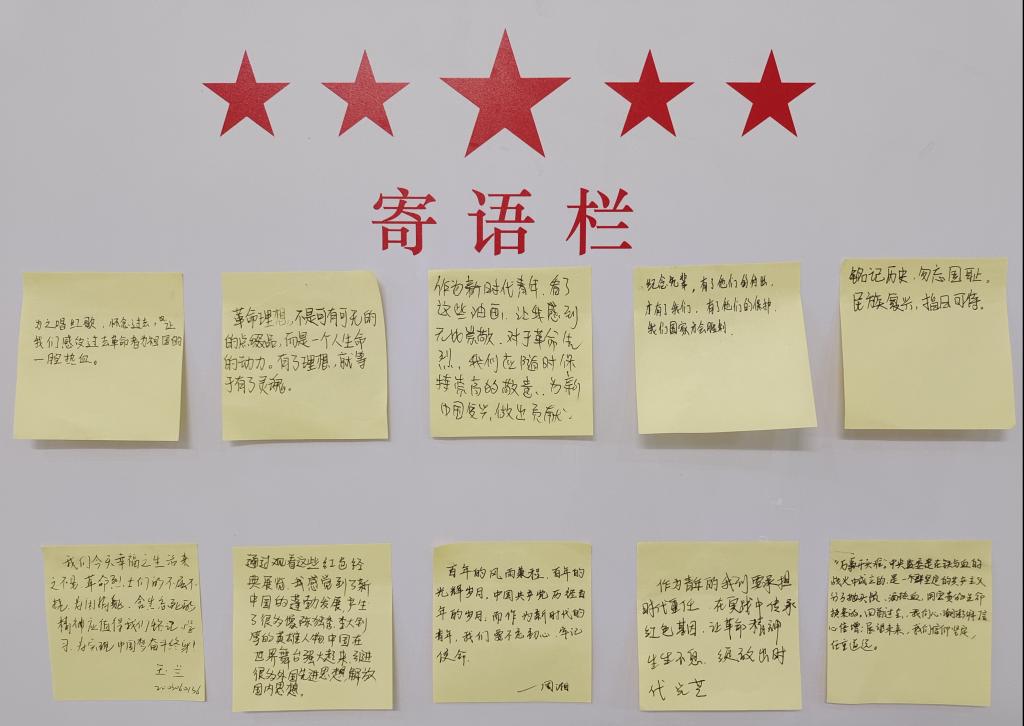 寄语栏
方之唱红歌，怀念过去，更让
我们感受过去革命者为祖国的
一腔热血。
革命理想，不是可有可无的
的点缀品，而是一个人生命
的动力。有了理想，就等
于有了灵魂。
作为新时代青年，看了
这些油画，让我感到
无比崇敬，对于革命先
烈，我们应随时保
持崇高的敬意、为新
中国复兴，做出贡献。
纪念先辈，有了他们的付出，
才有了我们，有了他们的保护，
我们国家才会胜利．
铭记历史，勿忘国耻，
民族复兴，指日可待。
我们今天幸福之生活来
之不易 革命烈士们的不屈不
挠，舍生忘死的
精神应值得我们铭记 学
习，为实现中国梦奋斗终身！
王兰
通过观看这些红色经
典展览，我感觉到了新
中国的蓬勃发展，产生
了很为
厚的英雄人物 中国在
世界舞台强大起来，引进
很多外国先进思想，解放
国内思想。
百年的风雨兼程，百年的
光辉岁月，中国共产党历经百
年的岁月，而作为新时代的
青年，我们要不忘初心，牢记
使命．
—周湘
作为青年的我们要承担
时代重任，在实践中传承
红色基因，让革命精神
生生不息，绽放出时
代光芒
中央监委是在铁与血的
战火中成立的，是一个群坚定的共产主义
分子抛头颅、洒热血，用宝贵的生命
换来的。回首过去，我们心潮澎湃信
心倍增；展望未来，我们信仰坚定，
任重道远。